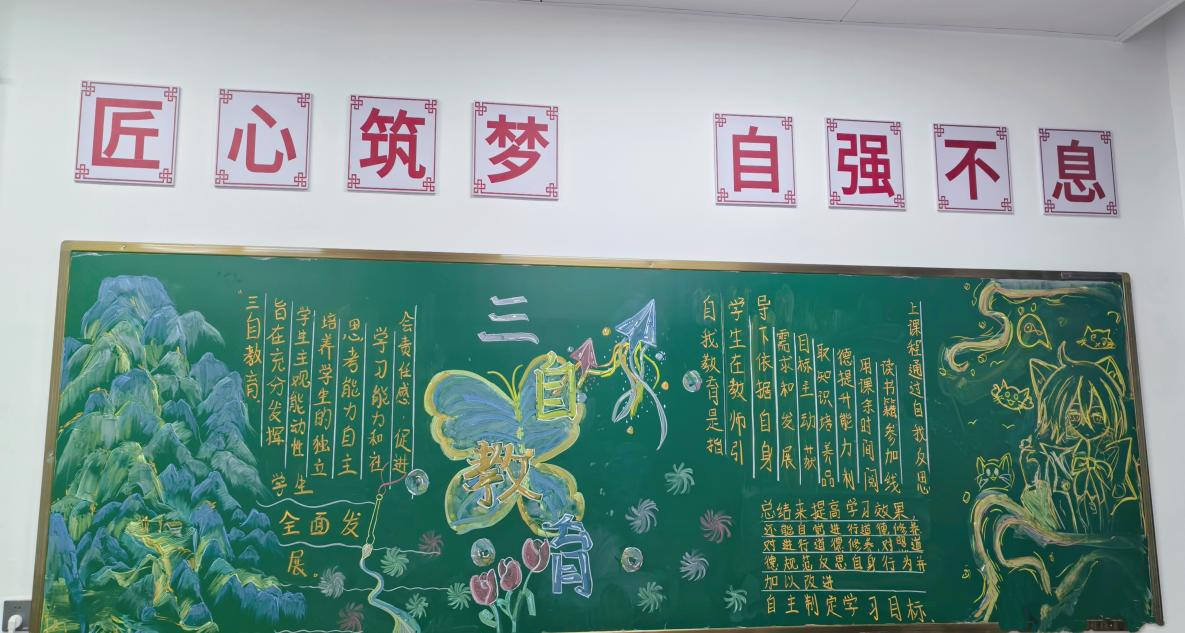 匠心筑梦 自强不息
三自教育
旨在充分发挥
学生主观能动性
培养学生的独立
思考能力自主
学习能力和社
会责任感 促进
学生
全面发
展。
三自教育
自我教育是指
学生在教师引
导下依据自身
需求和发展
目标主动获
取知识培养品
德提升能力利
用课余时间阅
读书籍参加线
上课程通过自我反思
总结来提高学习效果,
还能自觉进行道德修养
对进行道德修养对照道
德规范反思自身行为并
加以改进
自主制定学习目标、